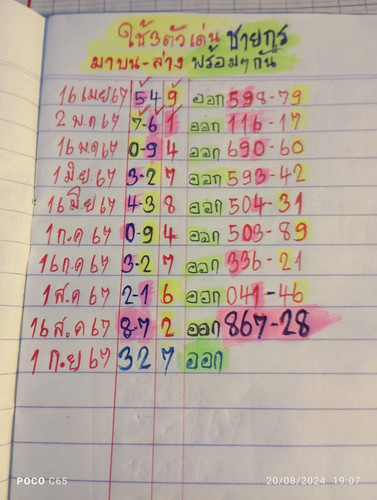 ใช้3ตัวเด่น ชายกร
มาบน-ล่าง พร้อมๆกัน
16 เมย 67 5-4 9 ออก 598-79
2 พ.ค 67 7-6 1 ออก 116-17
16 พ.ค 67 0-9 4 ออก 690-60
1 มิย 67 3-2 7 ออก 593-42
16 มิ.ย 67 4-3 8 ออก 504-31
1 ก.ค 67 0-9 4 ออก 503-89
16 ก.ค 67 3-2 7 ออก 336-21
1 ส.ค 67 2-1 6 ออก 041-46
16 ส.ค 67 8-7 2 ออก 867-28
1 ก.ย 67 3 2 7 ออก
POCO C65
20/08/2024 19:07